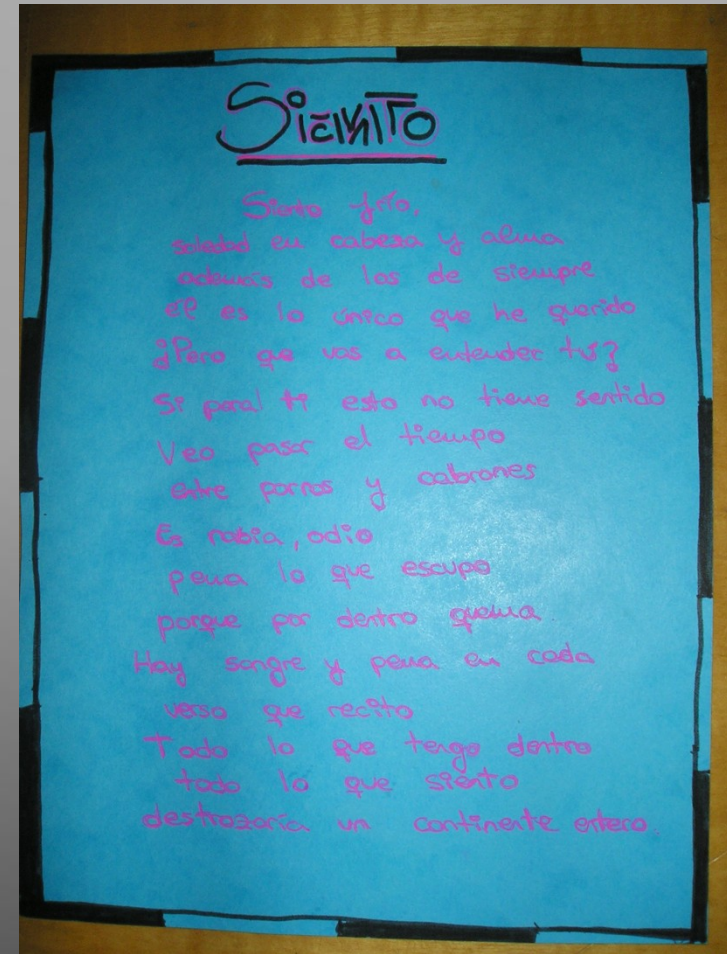 Siento
Siento frío,
soledad en cabeza y alma
además de los de siempre
él es lo único que he querido
¿Pero que vas a entender tú?
Si paral ti esto no tiene sentido
Veo pasar el tiempo
entre porros y cabrones
Es rabia, odio
pena lo que escupo
porque por dentro quema
Hay sangre y pena en cada
verso que recito
Todo lo que tengo dentro
todo lo que siento
destrozaría un continente entero.